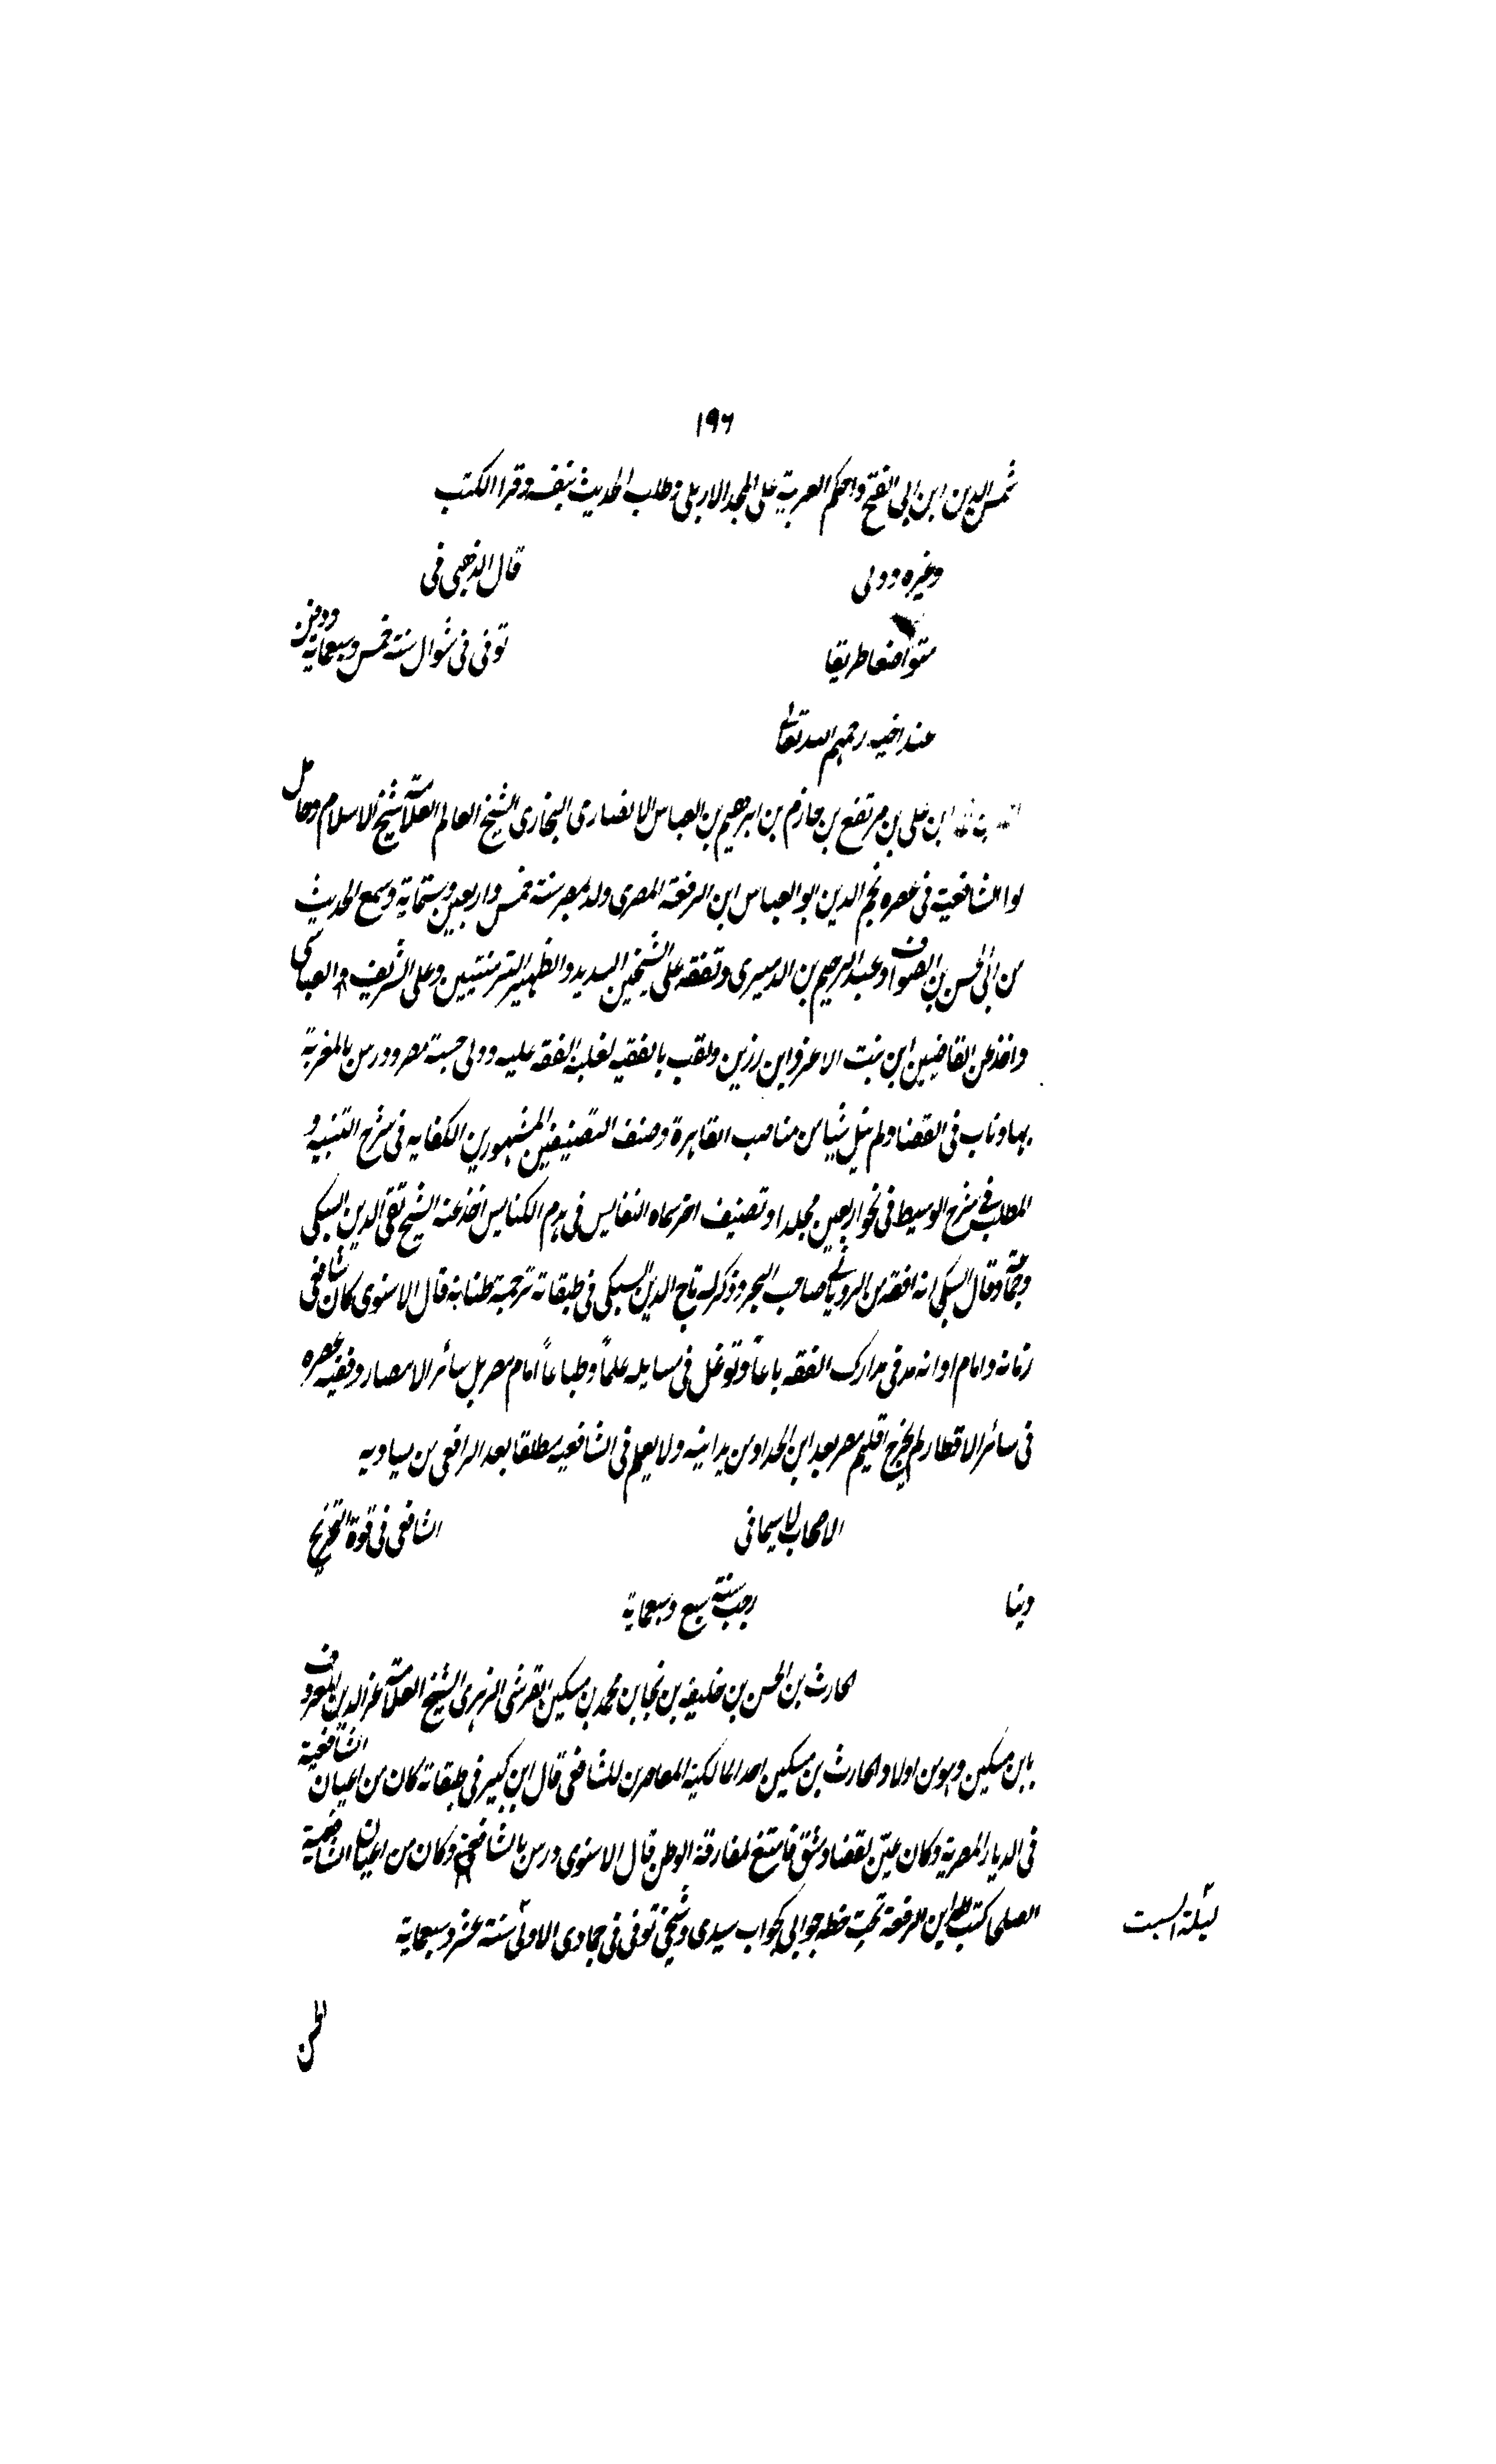 ١٩٦
شمس الدين ابن ابى الفتح واحكم العربية على المجد الاربلى وطلب الحديث بنفسه وقرا الكتب
وغيره وولى قال الذهبى فى
متواضعا طريقا توفى فى شوال سنة خمس وسبعماية ودفن
عند اخيه رحمهم الله تعالى
ابن على بن مرتفع بن حازم بن ابرهيم بن العباس الانصارى البخارى الشيخ العالم العلامة شيخ الاسلام وحامل
لوا الشافعية فى عصره نجم الدين ابو العباس ابن الرفعة المصرى ولد بمصر سنة خمس واربعين وستماية وسمع الحديث
من ابى الحسن بن الصواف وعبد الرحيم بن الدميرى وتفقه على الشيخين السديد والظهير التزمنتيين وعلى الشريف العباسى
واخذ عن القاضيين ابن بنت الاعز وابن رزين ولقب بالفقيه لغلبة الفقه عليه وولى حسبة مصر ودرس بالمغربة
بها وناب فى القضا ولم ينل شيا من مناصب القاهرة وصنف التصنيفين المشهورين الكفايه فى شرح التنبيه و
المطلب فى شرح الوسيط فى نحو اربعين مجلدا وتصنيف اخر سماه النفايس فى هدم الكنايس اخذ عنه الشيخ تقى الدين السبكى
وجماعة وقال السبكى انه افقه من الرويانى صاحب البحر وذكر له تاج الدين السبكى فى طبقاته ترجمة طنانه قال الاسنوى كان شافعى
زمانه وامام اوانه مد فى مدارك الفقه باعاً وتوغل فى مسايله علماً وطباعاً امام مصر بل سائر الامصار وفقيه عصره
فى سائر الاقطار لم يخرج اقليم مصر بعد ابن الحداد من يدانيه ولا يعلم فى الشافعيه مطلقا بعد الرافعى من يساويه
الاصحاب لا سيما فى الشافعى فى قوة التخريج
دينا رجب سنة سبع وسبعماية
الحارث بن الحسن بن خليفه بن نجا بن محمد بن مسكين القرشى الزهرى الشيخ العلامة عز الدين المعروف
بابن مسكين وهو من اولاد الحارث بن مسكين احد المالكية المعاصرين للشافعى قال ابن كثير فى طبقاته كان من اعيان الشافعية
فى الديار المصرية وكان عين لقضا دمشق فامتنع لمفارقة الوطن قال الاسنوى درس بالشافعى وكان من اعيان الشافعية
الصلحا كتب له ابن الرفعة تحت خطه جوابى كجواب سيدى وشيخى توفى فى جمادى الاولى سنة عشر وسبعماية
ليلة السبت
الحسن